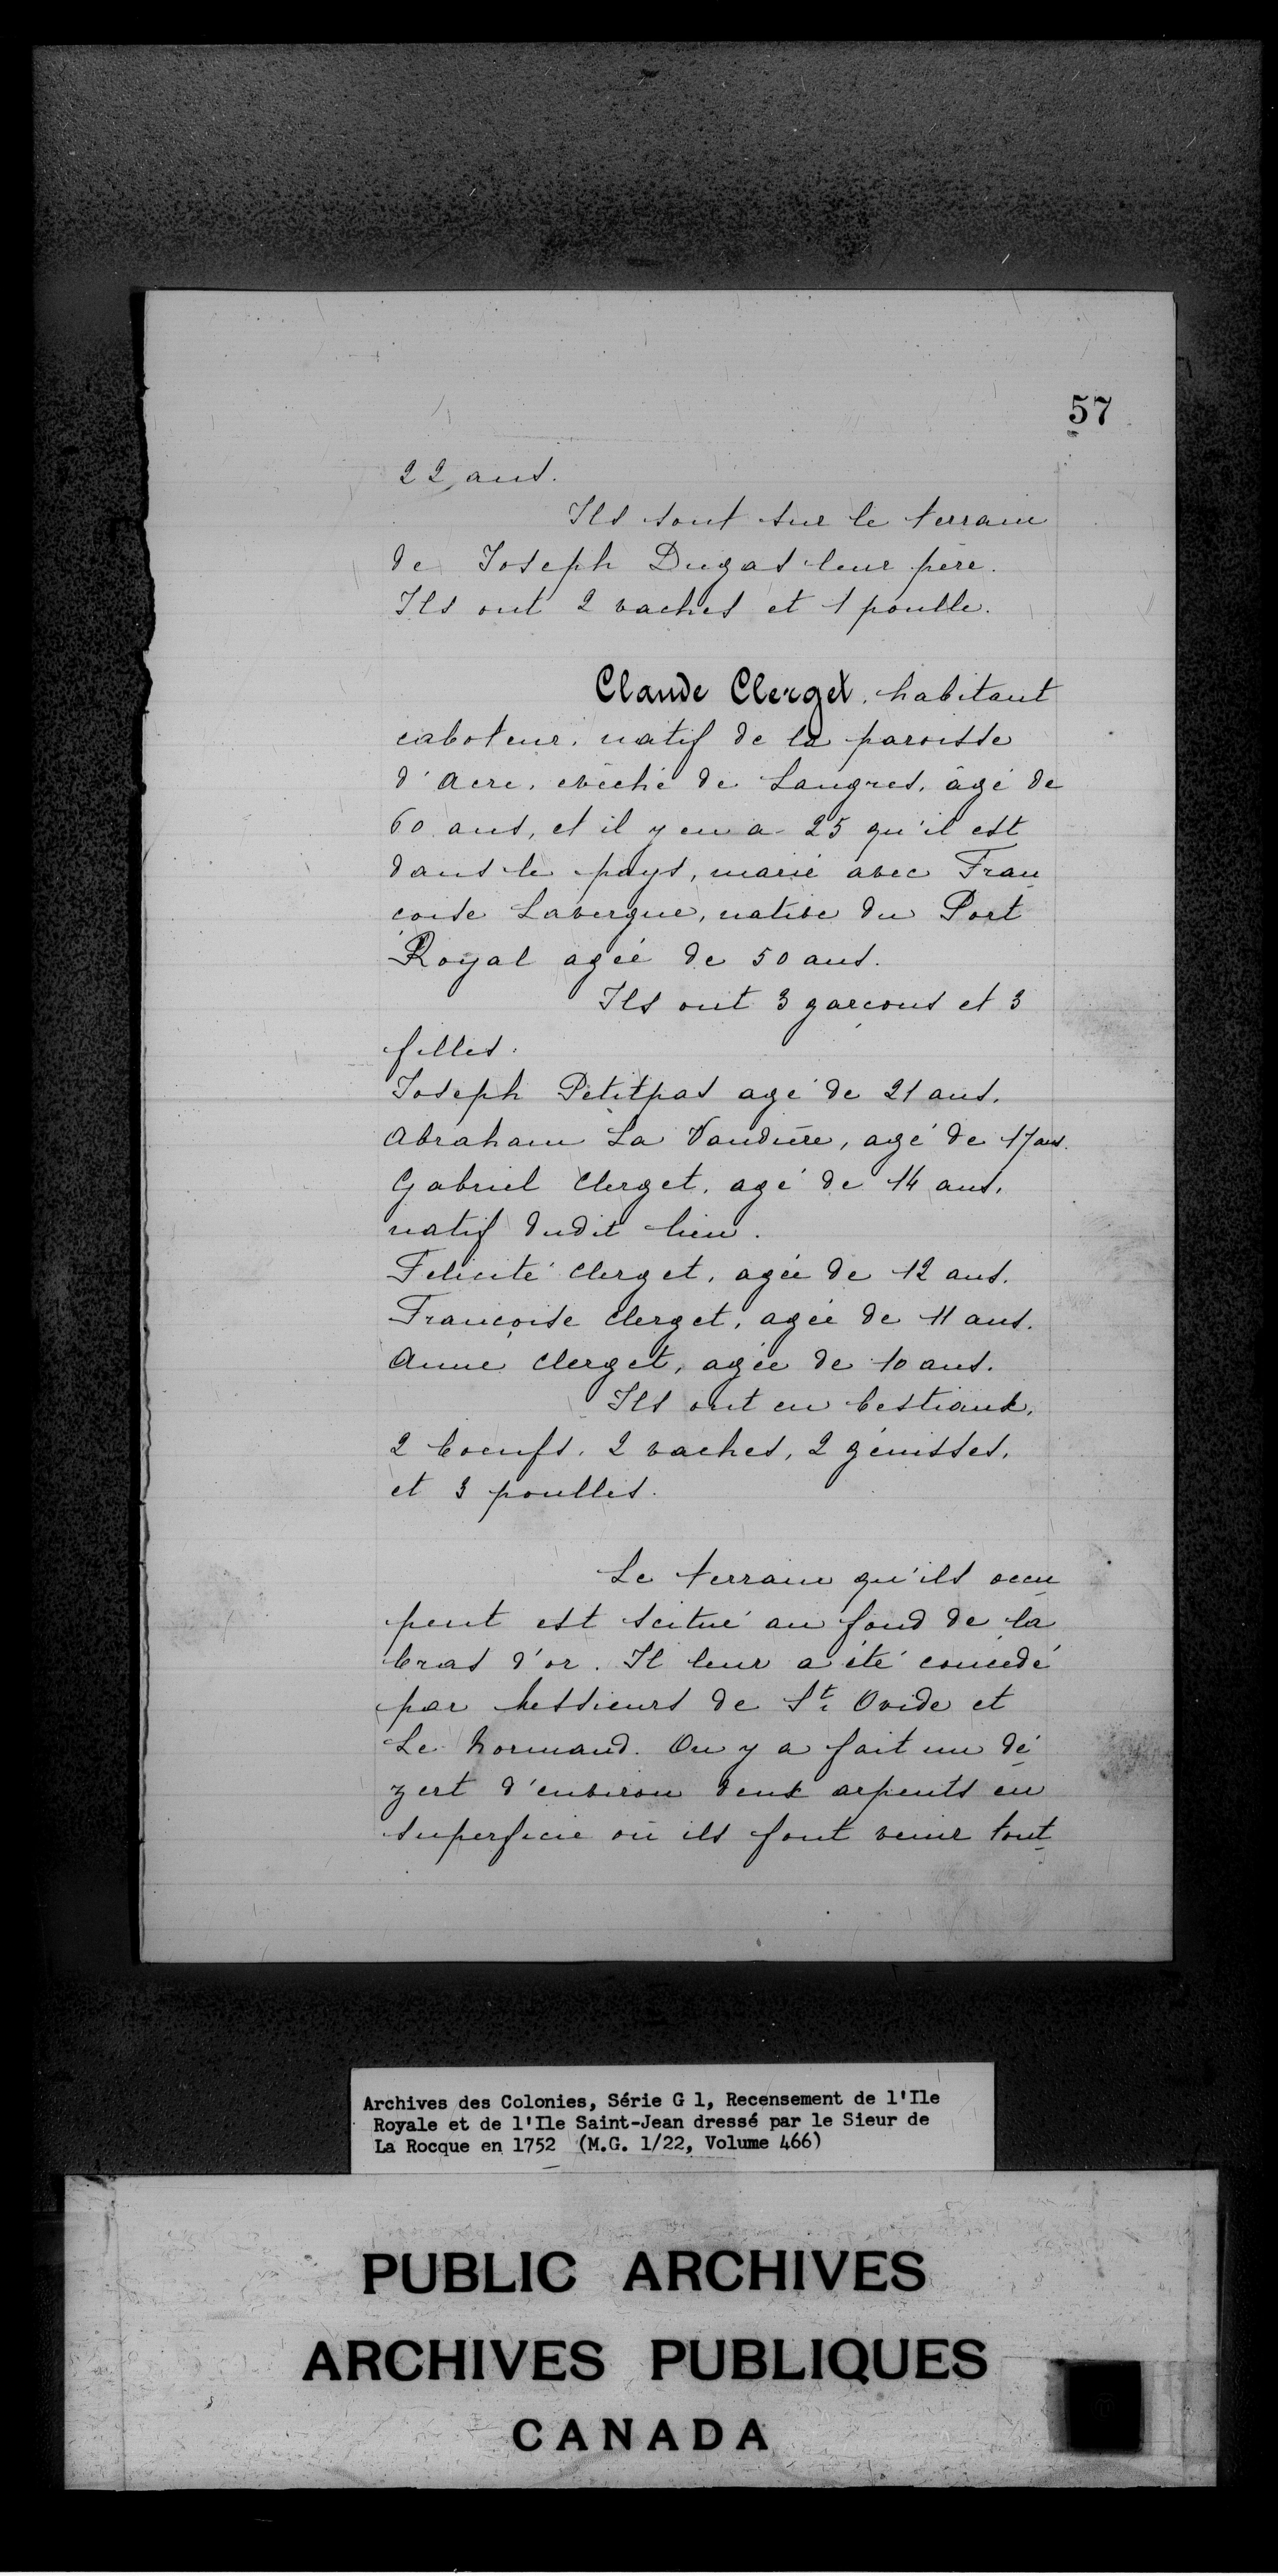 57
22 ans.
Ils sont sur le terrain
de Joseph Dugas leur père.
Ils ont 2 vaches et 1 poulle.
Claude Clerget, habitant
caboteur, natif de la paroisse
d'Acre, evêché de Langres, âgé de
60 ans, et il y en a 25 qu'il est
dans le pays, marié avec Fran
çoise Lavergne, native du Port
Royal agée de 50 ans.
Ils ont 3 garçons et 3
filles.
Joseph Petitpas agé de 21 ans.
Abraham La Vandière, agé de 17 ans.
Gabriel Clerget, agé de 14 ans,
natif dudit lieu.
Felicité Clerget, agée de 12 ans.
Françoise Clerget, agée de 11 ans.
Anne Clerget, agée de 10 ans.
Ils ont en bestiaux,
2 boeufs, 2 vaches, 2 génisses,
et 3 poulles.
Le terrain qu'ils occu
pent est scitué au fond de la
bras d'or. Il leur a été concédé
par Messieurs de St. Ovide et
Le Normand. On y a fait un dé
zert d'environ deux arpents en
superficie où ils font venir tout
Archives des Colonies, Série G 1, Recensement de l'Ile
Royale et de l'Ile Saint-Jean dressé par le Sieur de
La Rocque en 1752 (M.G. 1/22, Volume 466)
PUBLIC ARCHIVES
ARCHIVES PUBLIQUES
CANADA